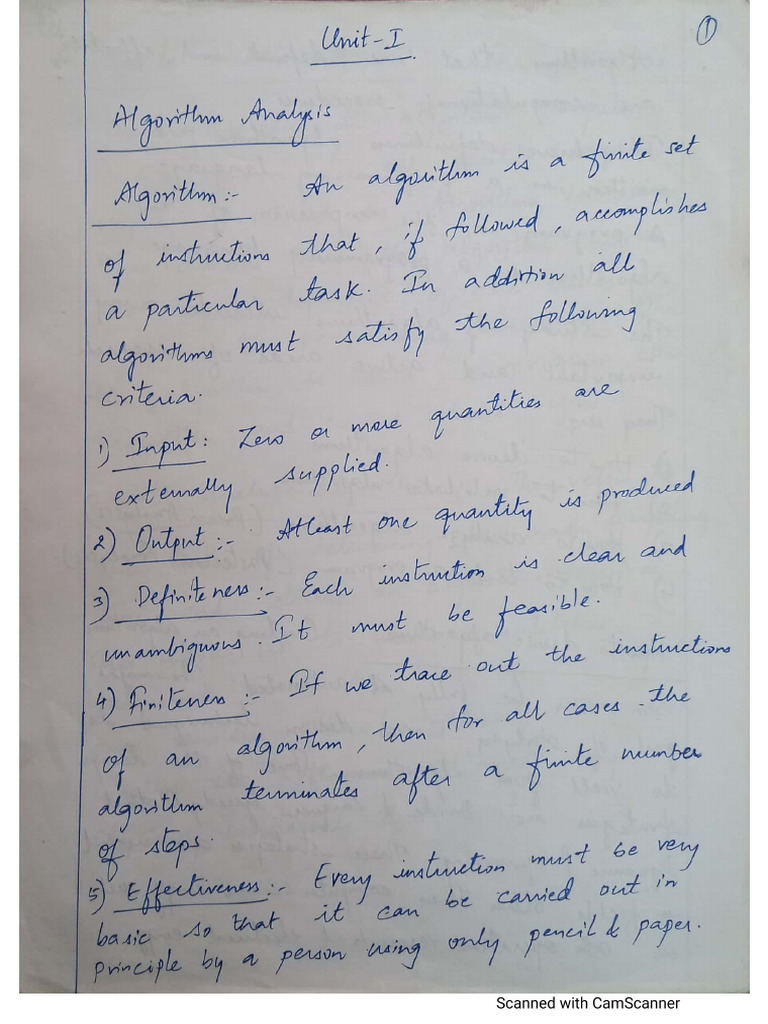 Unit-I
1
Algorithm Analysis
Algorithm:- An algorithm is a finite set
of instructions that, if followed, accomplishes
a particular task. In addition all
algorithms must satisfy the following
criteria.
1) Input: Zero or more quantities are
externally supplied.
2) Output:- Atleast one quantity is produced
3) Definiteness:- Each instruction is clear and
unambiguous. It must be feasible.
4) Finiteness:- If we trace out the instructions
of an algorithm, then for all cases the
algorithm terminates after a finite number
of steps.
5) Effectiveness:- Every instruction must be very
basic so that it can be carried out in
principle by a person using only pencil & paper.
Scanned with CamScanner